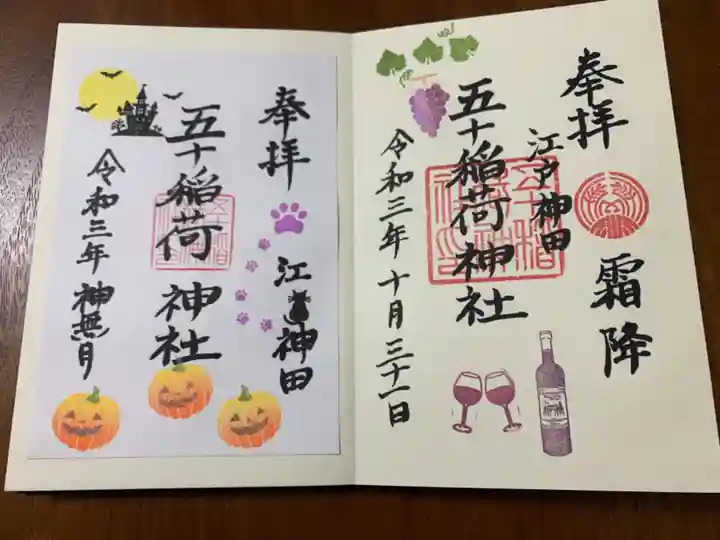 奉拝
霜降
江戸神田
五十稲荷神社
令和三年十月三十一日
奉拝
江戸神田
五十稲荷神社
令和三年神無月